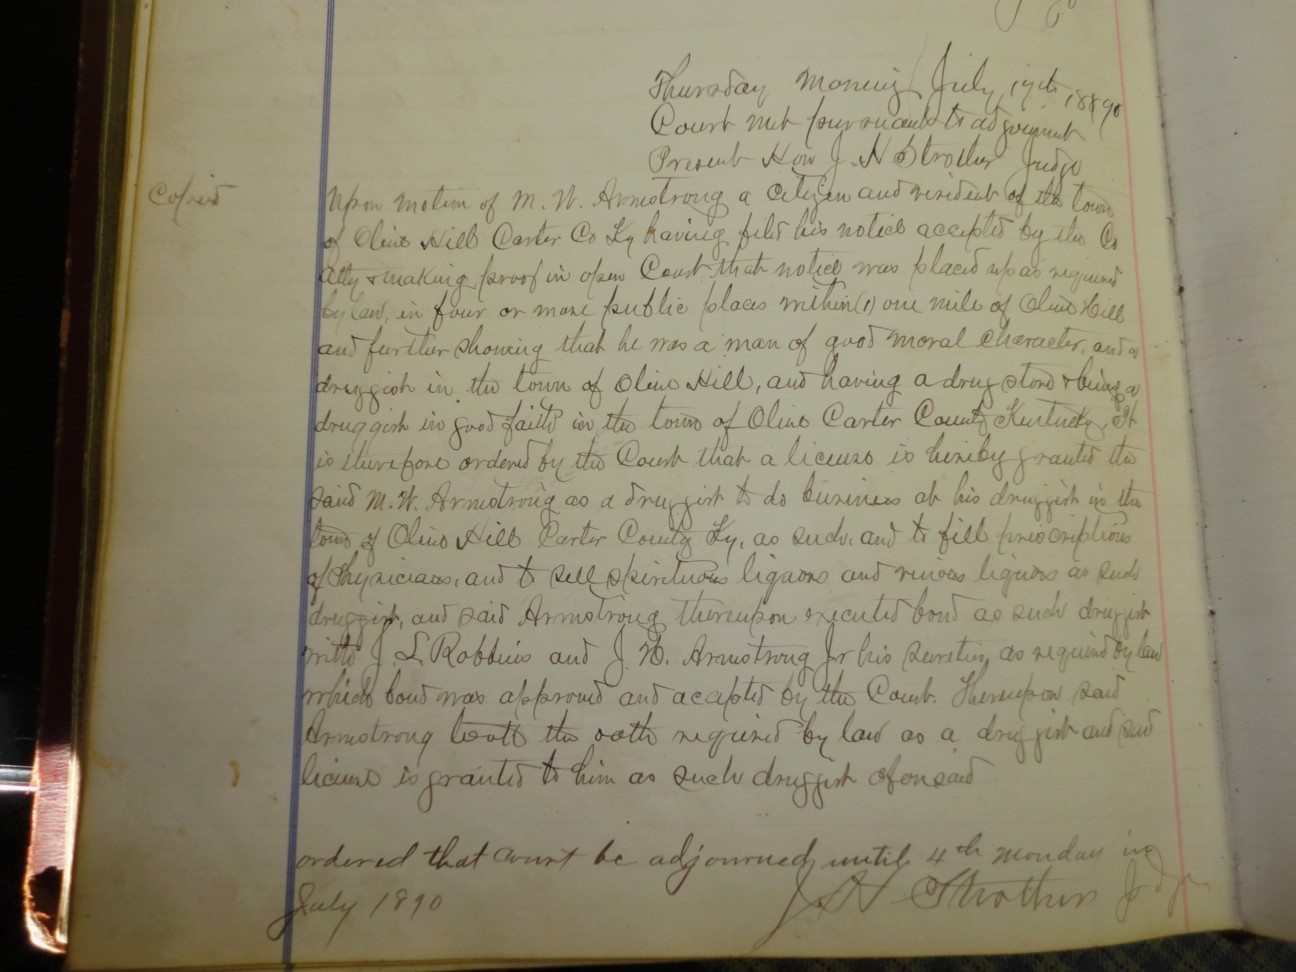 Thursday Morning July 17th 1890
Court met pursuant to adjoiment
Present Hon J. H Strother Judge
Copied
Upon motion of M. W. Armstrong a citizen and resident of the town
of Olive Hill Carter Co Ky having filed his notice accepted by the Co
Atty & making proof in open Court that notice was placed up as required
by law, in four or more public places within (1) one mile of Olive Hill
and further showing that he was a man of good moral character, and a
druggist in the town of Olive Hill, and having a drug store & being a
druggist in good faith in the town of Olive Carter County Kentucky, It
is therefore ordered by the Court that a license is hereby granted the
said M. W. Armstrong as a druggist to do business at his druggist in the
town of Olive Hill Carter County Ky, as such, and to fill prescriptions
of Physicians, and to sell spirituous liquors and vinous liquors as such
druggist, and said Armstrong thereupon executed bond as such druggist
with J. L Robbins and J. W. Armstrong Jr his sureties, as required by law
which bond was approved and accepted by the Court. Thereupon said
Armstrong took the oath required by law as a druggist and said
license is granted to him as such druggist aforesaid
ordered that court be adjourned until 4th monday in
July 1890
J. H Strother Judge